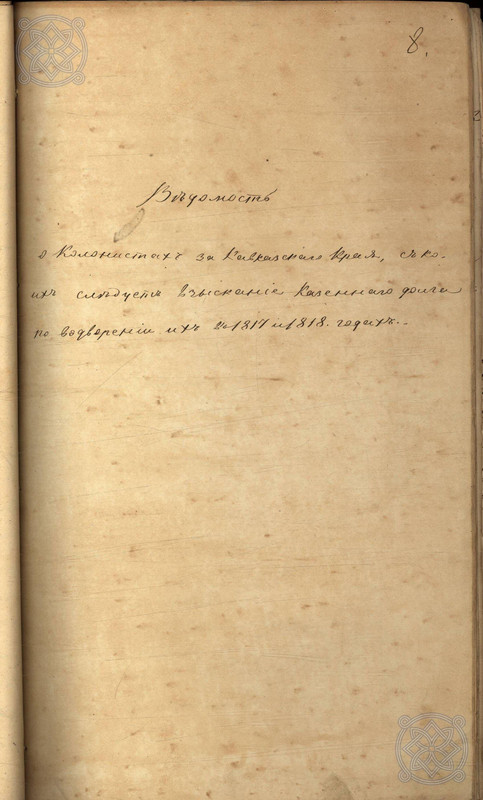 8.
Вѣдомость
о Колонистахъ за Кавказскаго Края, съ ко-
ихъ слѣдуетъ взысканіе Казеннаго долга
по водвореніи ихъ въ 1817 и 1818. годахъ.